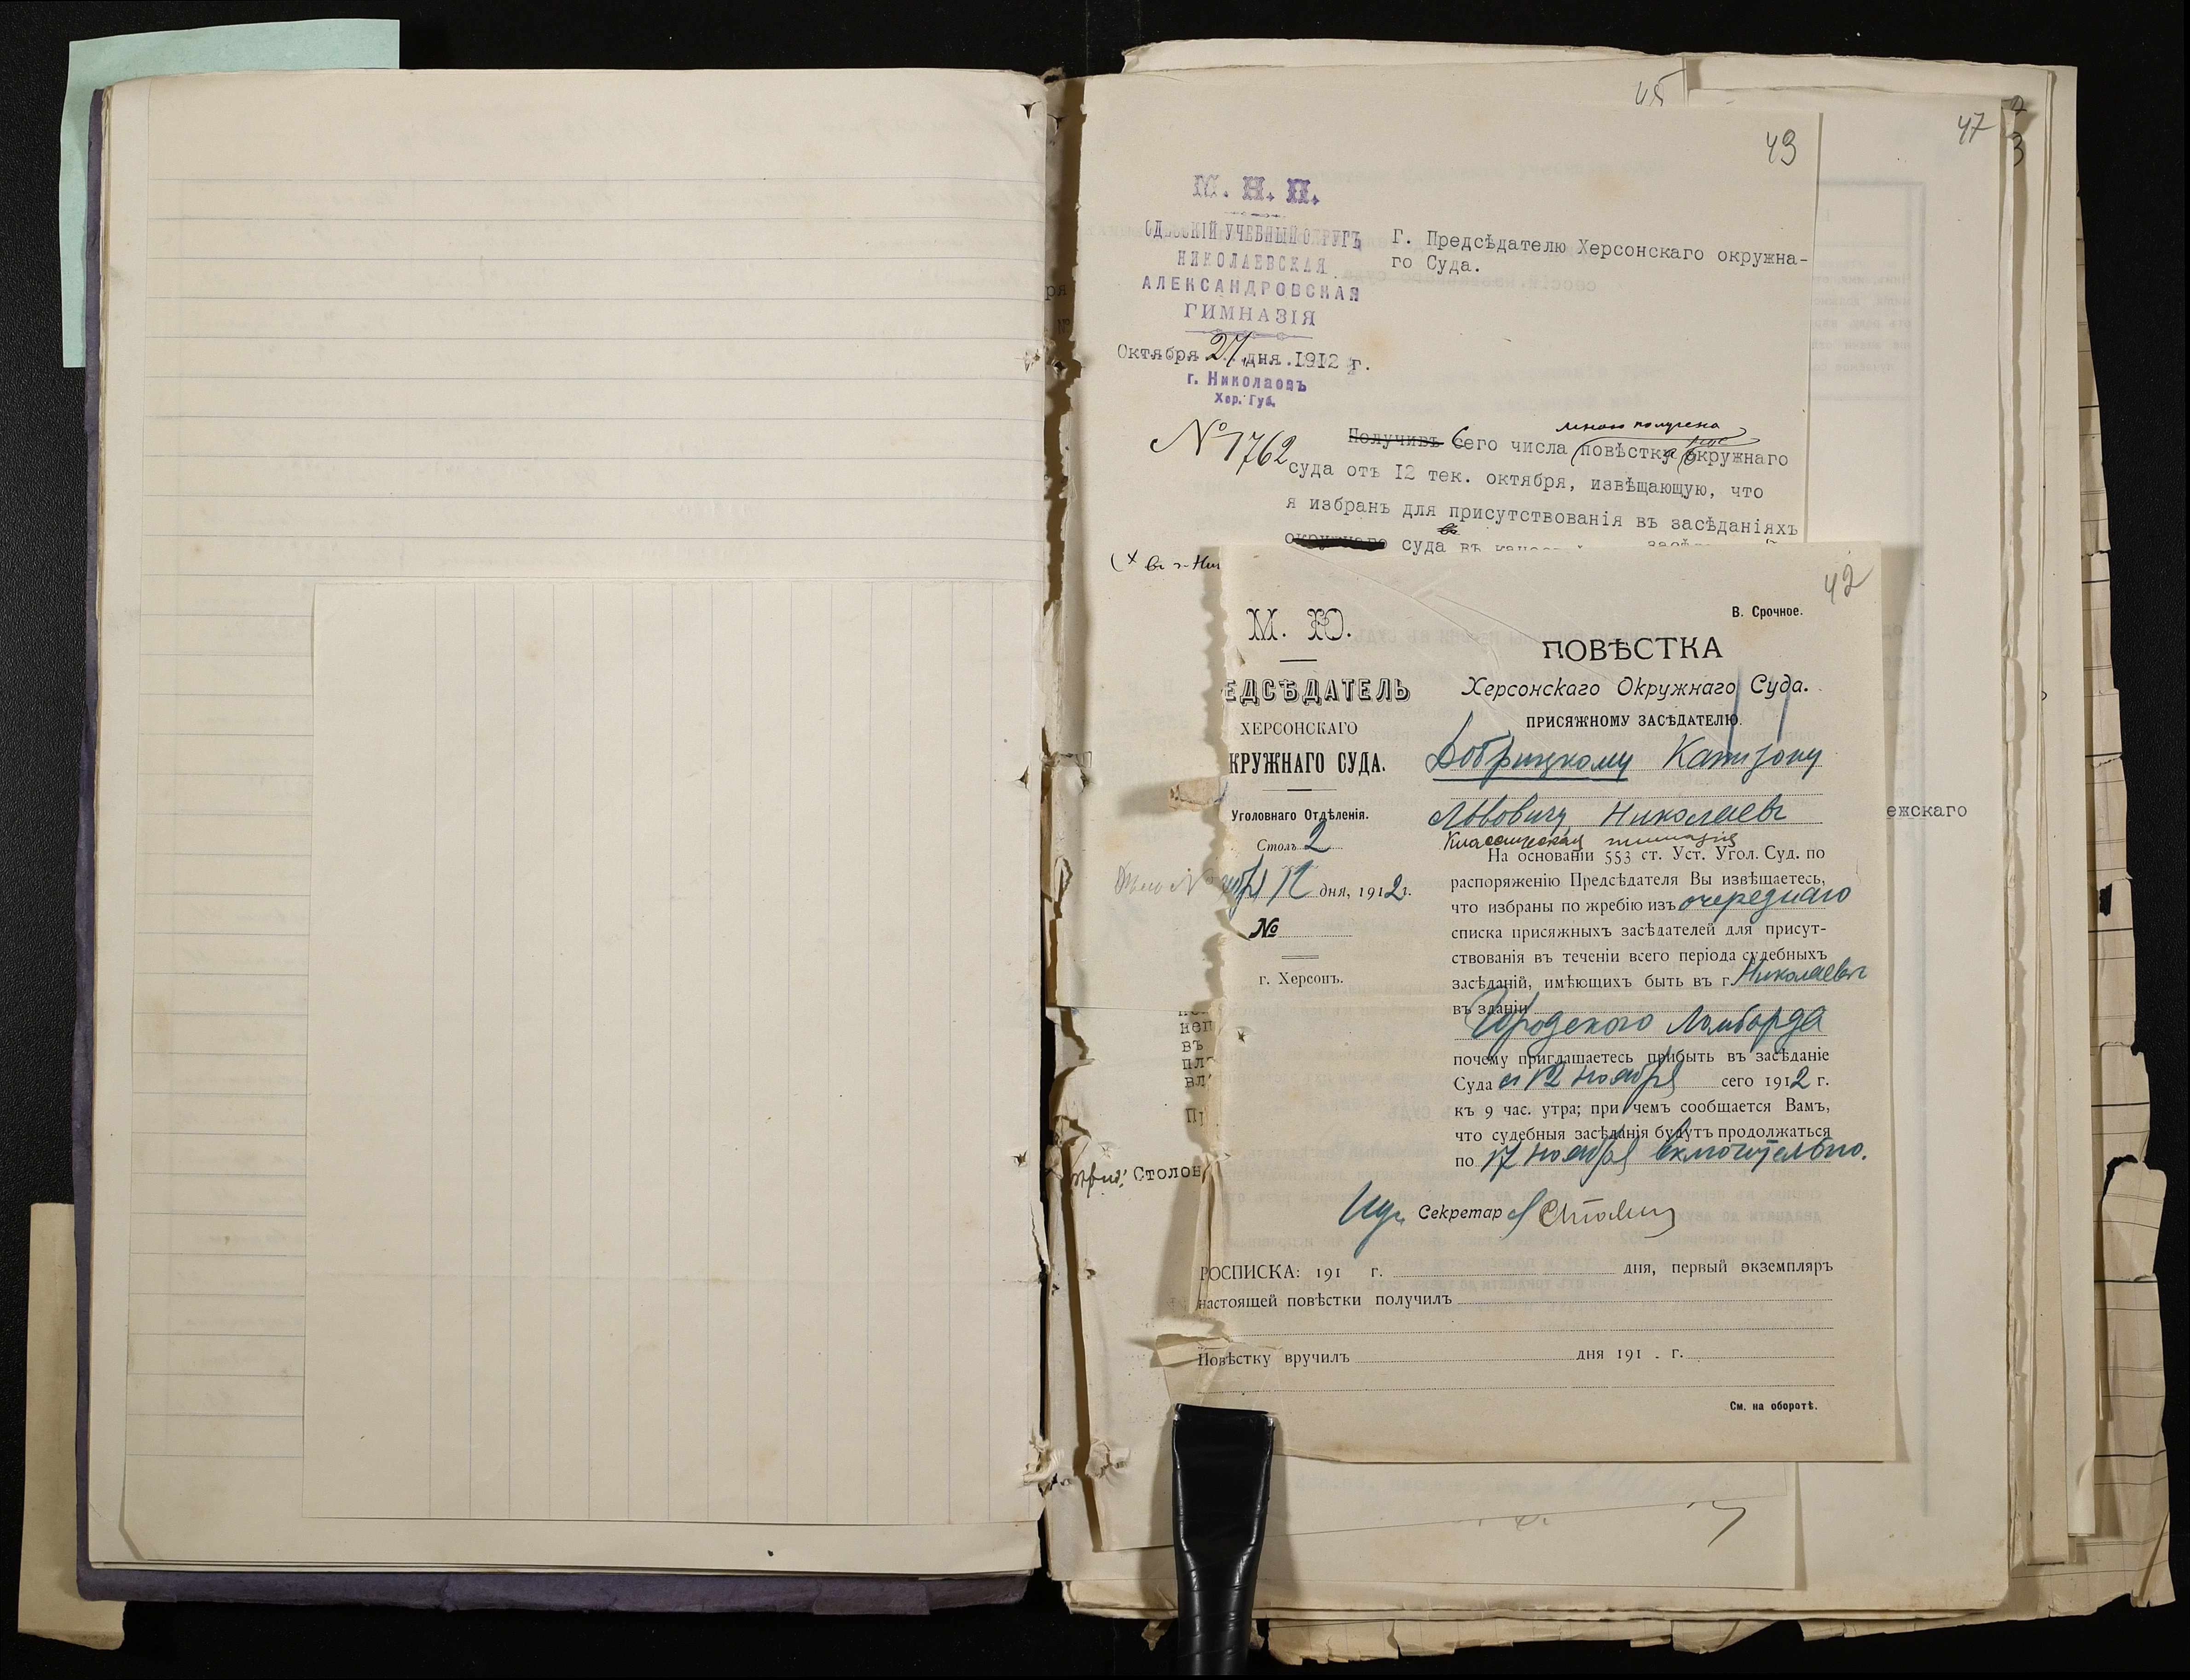 45
43
47
М. Н. П.
ОДЕССКІЙ УЧЕБНЫЙ ОКРУГЪ
НИКОЛАЕВСКАЯ
АЛЕКСАНДРОВСКАЯ
ГИМНАЗІЯ
Октября 27 дня 1912 г.
г. Николаевъ
Хер. Губ.
№ 1762
Г. Предсѣдателю Херсонскаго окружна-
го Суда.
мною получена
Получивъ Сего числа повѣстка окружнаго
суда отъ 12 тек. октября, извѣщающую, что
я избранъ для присутствованія въ засѣданіяхъ
окружнаго суда въ
(× въ г.
42
М. Ю.
ЕДСѢДАТЕЛЬ
ХЕРСОНСКАГО
КРУЖНАГО СУДА.
Уголовнаго Отдѣленія.
Столъ 2
12 дня, 1912 г.
№
г. Херсонъ.
В. Срочное.
ПОВѢСТКА
Херсонскаго Окружнаго Суда.
ПРИСЯЖНОМУ ЗАСѢДАТЕЛЮ
Добрицкому
Львовичу, Николаевъ
Классическая гимназія
На основаніи 553 ст. Уст. Угол. Суд. по
распоряженію Предсѣдателя Вы извѣщаетесь,
что избраны по жребію изъ очереднаго
списка присяжныхъ засѣдателей для присут-
ствованія въ теченіи всего періода судебныхъ
засѣданій, имѣющихъ быть въ г. Николаевѣ
въ зданіи
Городского Ломбарда
почему приглашаетесь прибыть въ засѣданіе
Суда 12 ноября сего 1912 г.
къ 9 час. утра; при чемъ сообщается Вамъ,
что судебныя засѣданія будутъ продолжаться
по 17 ноября включительно.
Секретар
РОСПИСКА: 191 г. дня, первый экземпляръ
настоящей повѣстки получилъ
Повѣстку вручилъ дня 191 . г.
См. на оборотѣ.
ежскаго
неп
въ
пл
вл
Столон